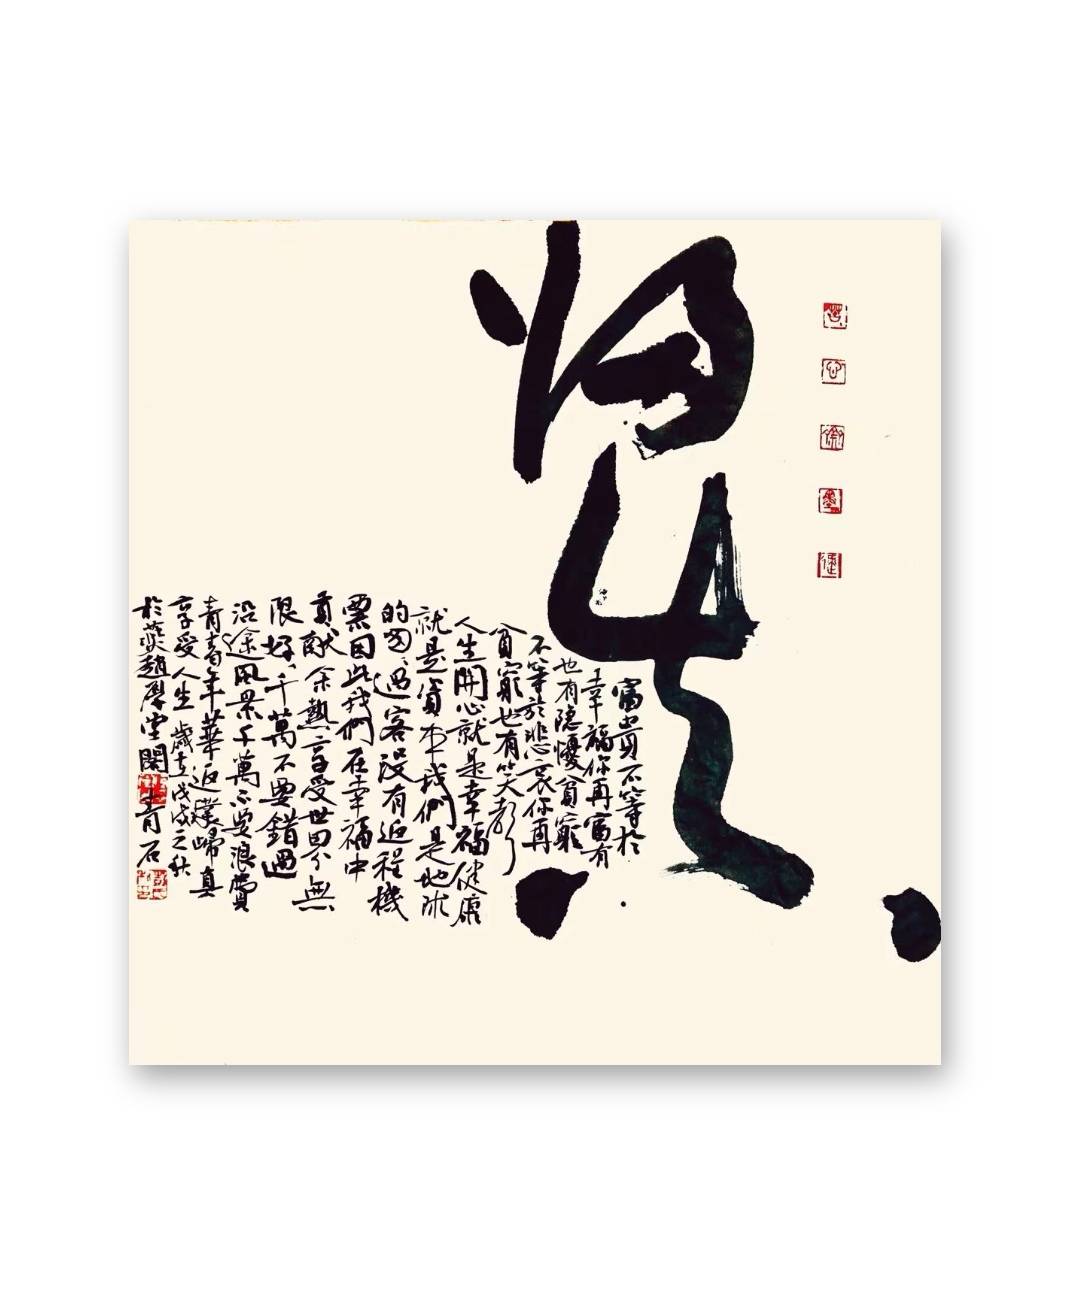 归真
富貴不等於
幸福你再富有
也有隐憂貧窮
不等於悲哀你再
貧窮也有笑聲
人生開心就是幸福健康
就是資本我們是地球
的匆匆過客没有返程機
票因此我們在幸福中
貢献余熱享受世界無
限好千萬不要錯過
沿途風景千萬不要浪費
青春年華返璞歸真
享受人生歲在戊戌之秋
於燕趙厚堂閣青石